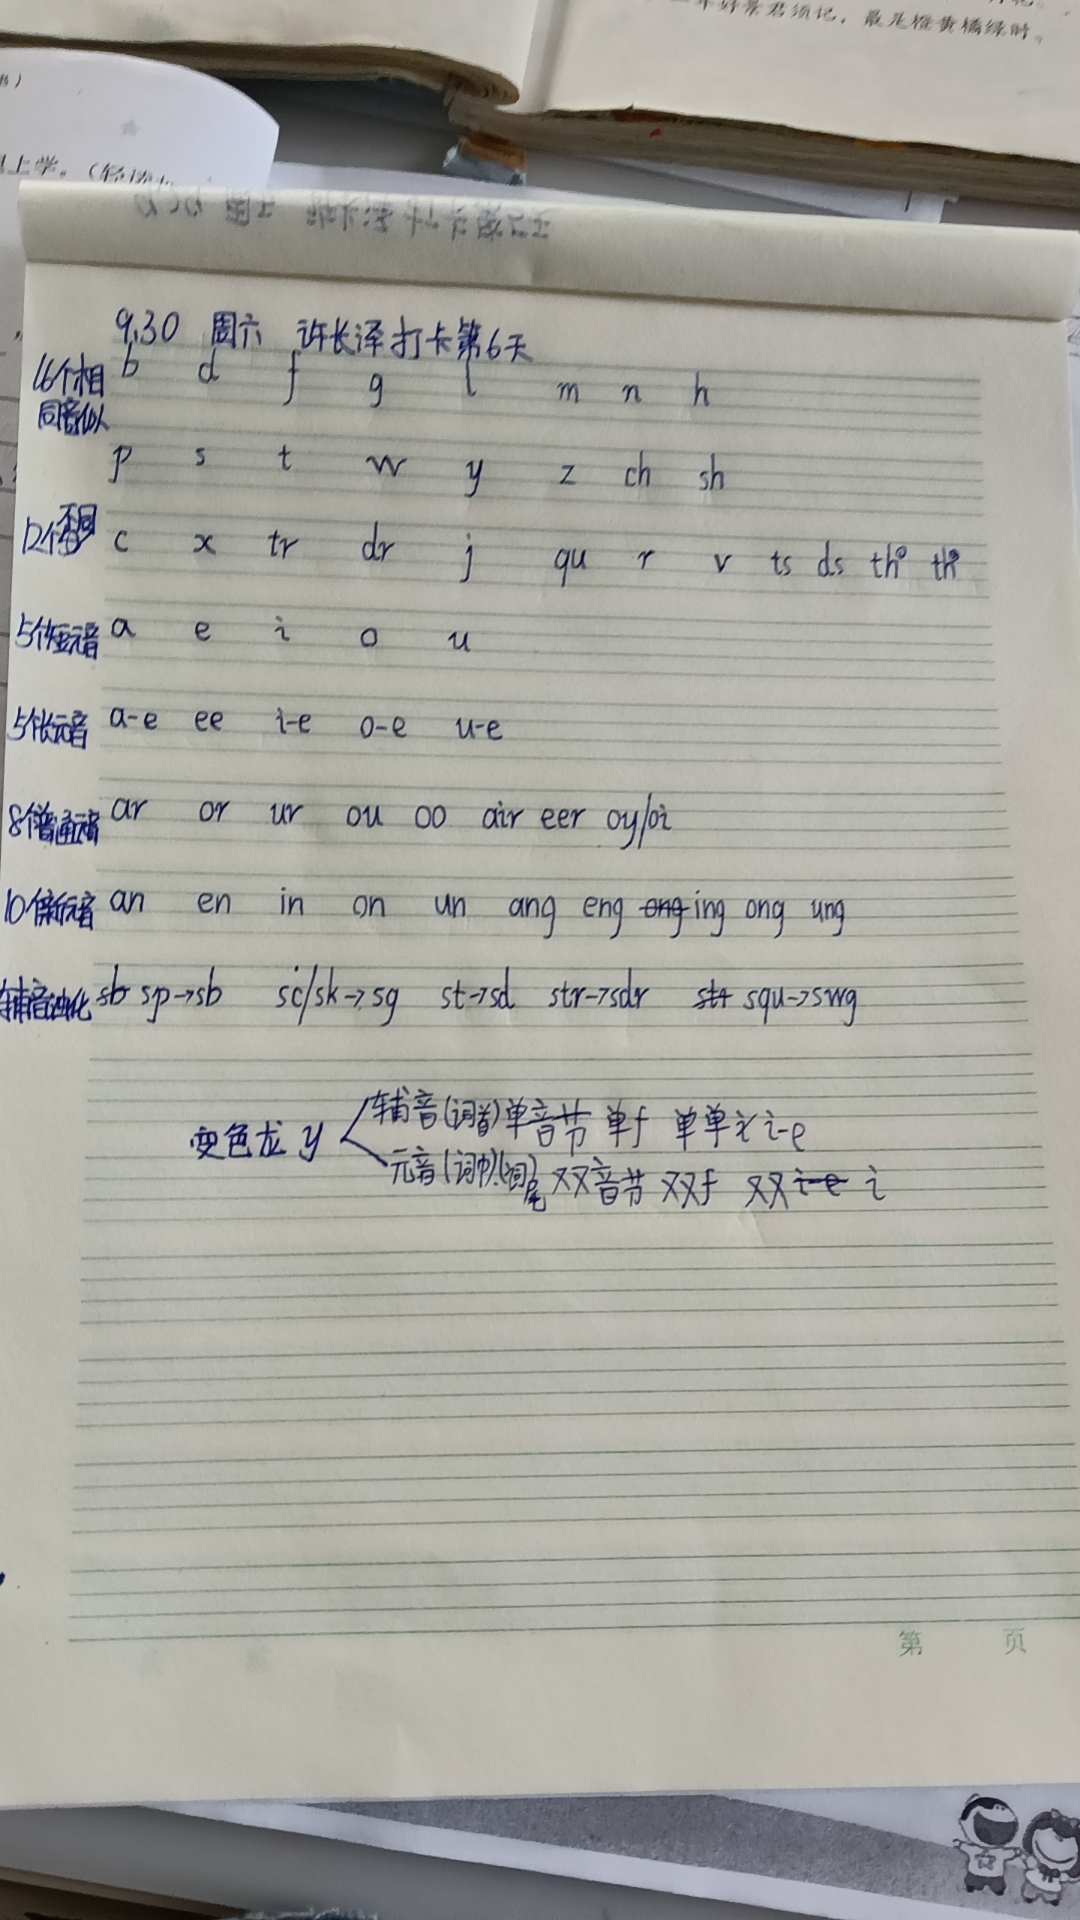 年好景君须记，最是橙黄橘绿时。
上学。(轻读
9.30 周六 许长泽打卡第6天
16个相同音似 b d f g l m n h
p s t w y z ch sh
12个不同 c x tr dr j qu r v ts ds th th
5个短元音 a e i o u
5个长元音 a-e ee i-e o-e u-e
8个普通元音 ar or ur ou oo air eer oy/oi
10个新元音 an en in on un ang eng ong ing ong ung
辅音浊化 sb sp→sb sc/sk→sg st→sd str→sdr str squ→swg
变色龙 y
辅音(词首)单音节 单f 单单i i-e
元音(词中)(词尾)双音节 双f 双i-e i
第 页